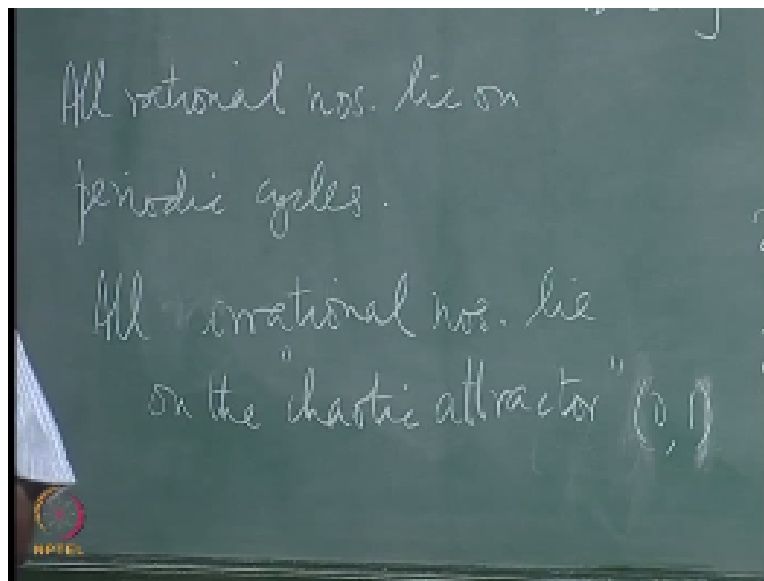 All rational nos. lie on
periodic cycles.
All irrational nos. lie
on the "chaotic attractor" (0,1)
NPTEL